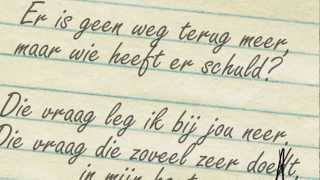 Er is geen weg terug meer,
maar wie heeft er schuld?
Die vraag leg ik bij jou neer.
Die vraag die zoveel zeer doet,
in mijn